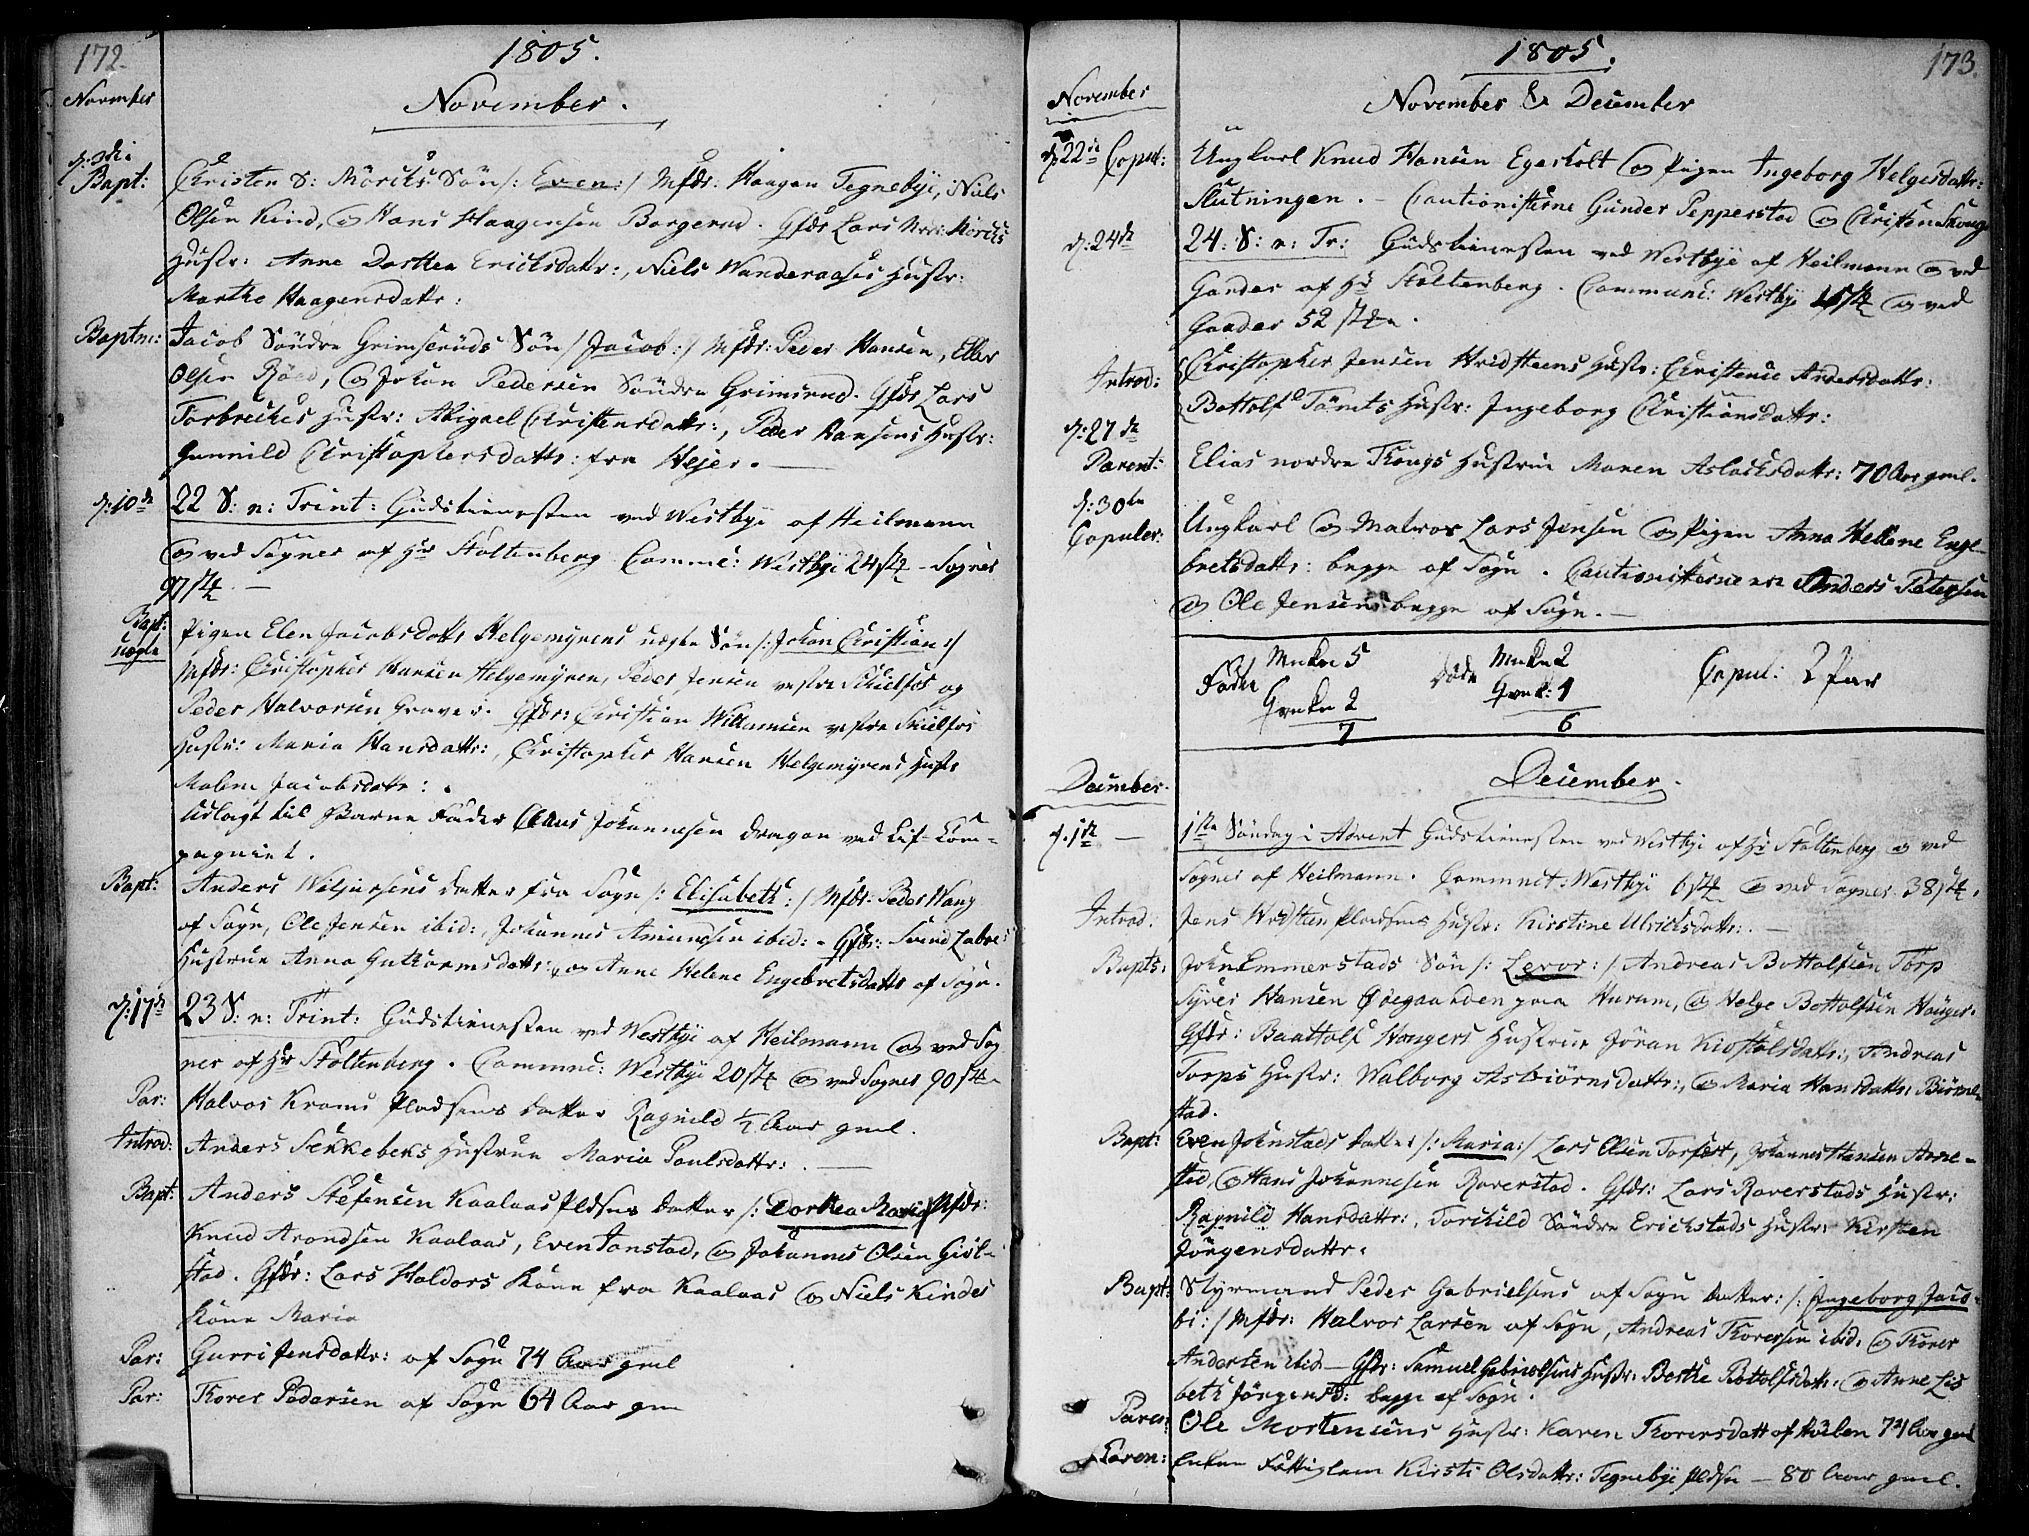 172.
1805.
November
November.
d: 3die
Bapt:
Christen S: Möriks Sön /: Even :/ Mfdr: Haagen Tegnebÿe, Niels
Olsen Kind, og Hans Haagensen Borgerud. Gfdr Lars Mörks
Hustr: Anne Dorthea Ericksdattr:, Niels Wanderaases Hustr:
Marthe Haagensdattr:
Baptm: Jacob Söndre Grimseruds Sön /: Jacob :/ Mfdr: Peder Hansen, Eller
Olsen Röed, og Johan Pedersen Söndre Grimsrud. Gfdr Lars
Torbreches Hustr: Abigael Christensdattr:, Peder Hansens Hustr:
Gunnild Christophersdattr: fra Hejer. —
d: 10de 22 S: n: Trint: Gudstienesten ved Westbye af Heilmann
og ved Sogner af Hr Stoltenberg Comme: Westbye 24 st - Sogner
97 st. —
Bapt: uægte
Pigen Elen Jacobsdattr Helgemÿrens uægte Sön /: Johan Christian :/
Mfdr: Christopher Hansen Helgemÿren, Peder Jensen vestre Schielfos og
Peder Halvorsen Graver. Gfdr: Christian Willumsen vestre Skielfos
Hustr: Maria Hansdattr:, Christopher Hansen Helgemÿrens Hustr
Malene Jacobsdattr:.
Udlagt til Barne Fader Claus Johannesen dragon ved Lif-Com=
pagniet.
Bapt: Anders datter fra Sogn /: Elisabeth :/ Mfdr: Peder Wang
af Sogn, Ole Jensen ibid:, Johannes Amundsen ibid:. Gfdr: Svend
Hustrue Anna Guthormsdattr: og Anne Helene Engebretsdattr af Sogn.
d: 17de 23 S: n: Trint: Gudstienesten ved Westbye af Heilmann og ved Sog
ner af Hr Stoltenberg. Commne: Westbye 20 st og ved Sogner 90 st
Par: Halvor Kroms Pladsens datter Ragnild 1/2 Aar gml.
Introd: Anders Sekkebeks Hustrue Maria Poulsdattr:. —
Bapt: Anders Stefensen Kaalaas Pldsns datter /: Dorthea Maria :/ Mfdr:
Knud Arondsen Kaalaas, Even Tonstad, og Johannes Olsen Giöl-
stad. Gfdr: Lars Haldors Kone fra Kaalaas og Niels Kindes
Kone Maria
Par: Gurri Jensdattr: af Sogn 74 Aar gml
Par: Thorer Pedersen af Sogn 64 Aar gm
1805.
173.
November
November & December
d: 22de Copul: Ungkarl Knud Hansen Egerholt og Pigen Ingeborg Helgesdattr:
Slutningen. — Cautionisterne Gunder Pepperstad og Christen Skoug
d: 24de 24: S: n: Tr: Gudstienesten ved Westbye af Heilmann og ved
Gaarder af Hr Stoltenberg. Commune: Westbye st og ved
Gaader 52 st.
Introd: Christopher Jensen Hvidsteens Hustr: Christence Andersdattr:
Bottolf Tömts Hustr: Ingeborg Christiansdattr:
d: 27de
Parent: Elias nordre Skougs Hustrue Maren Aslacksdattr: 70 Aar gml.
d: 30te
Copuler: Ungkarl og Matros Lars Jensen og Pigen Anna Hellene Enge-
bretsdattr: begge af Sogn. Cautionisterne Anders Petersen
og Ole Jensen begge af Sogn. —
Födte Mnkn 5
Qvnkn 2
7
döde Mnkn 2
Qvnk: 4
6
Copul: 2 Par
December.
December.
d. 1te — 1ste Söndag i Advent Gudstienesten ved Westbye af Hr Stoltenberg og ved
Sogner af Heilmann. Commnct: Westbye 6 st og ved Sogner 38 st.
Introd: Jens Hvidsteen Pladsens Hustr: Kirstine Ulricksdattr:. —
Bapts: John Emmerstads Sön /: Levor :/ Andreas Bottolfsen Törp
Syver Hansen Öiegaarden paa Hurum, og Helge Bottolfsen Houger.
Gfdr: Baattolf Hougers Hustrue Jöran Kiostolsdattr:, Andreas
Torps Hustr: Walborg Asbiörnsdattr:, og Maria Hansdattr: Biörne
stad.
Bapt: Even Johnstads datter /: Maria :/ Lars Olsen Torfest, Johannes Hansen Arne-
sted, og Hans Johannesen Raverstad. Gfdr: Lars Raverstads Hustr:
Ragnild Hansdattr:, Torchild Söndre Erichstads Hustr: Kirsten
Jörgensdattr.
Bapt: Styrmand Peder Gabrielsens af Sogn datter: /: Ingeborg Jaco-
bi :/ Mfdr: Halvor Larsen af Sogn, Andreas Thoresen ibid: og Thorer
Andersen ibid — Gfdr: Samuel Gabrielsens Hustr: Berthe Bottolfsdattr: og Anne Lis
beth Jörgensd: begge af Sogn.
Paren: Ole Mortensens Hustr: Karen Thorersdatt af Hvilen 74 Aar gml
Paren: Enken Fattiglem Kirsti Olsdattr: Tegnebye Pldsn — 80 Aar gml.